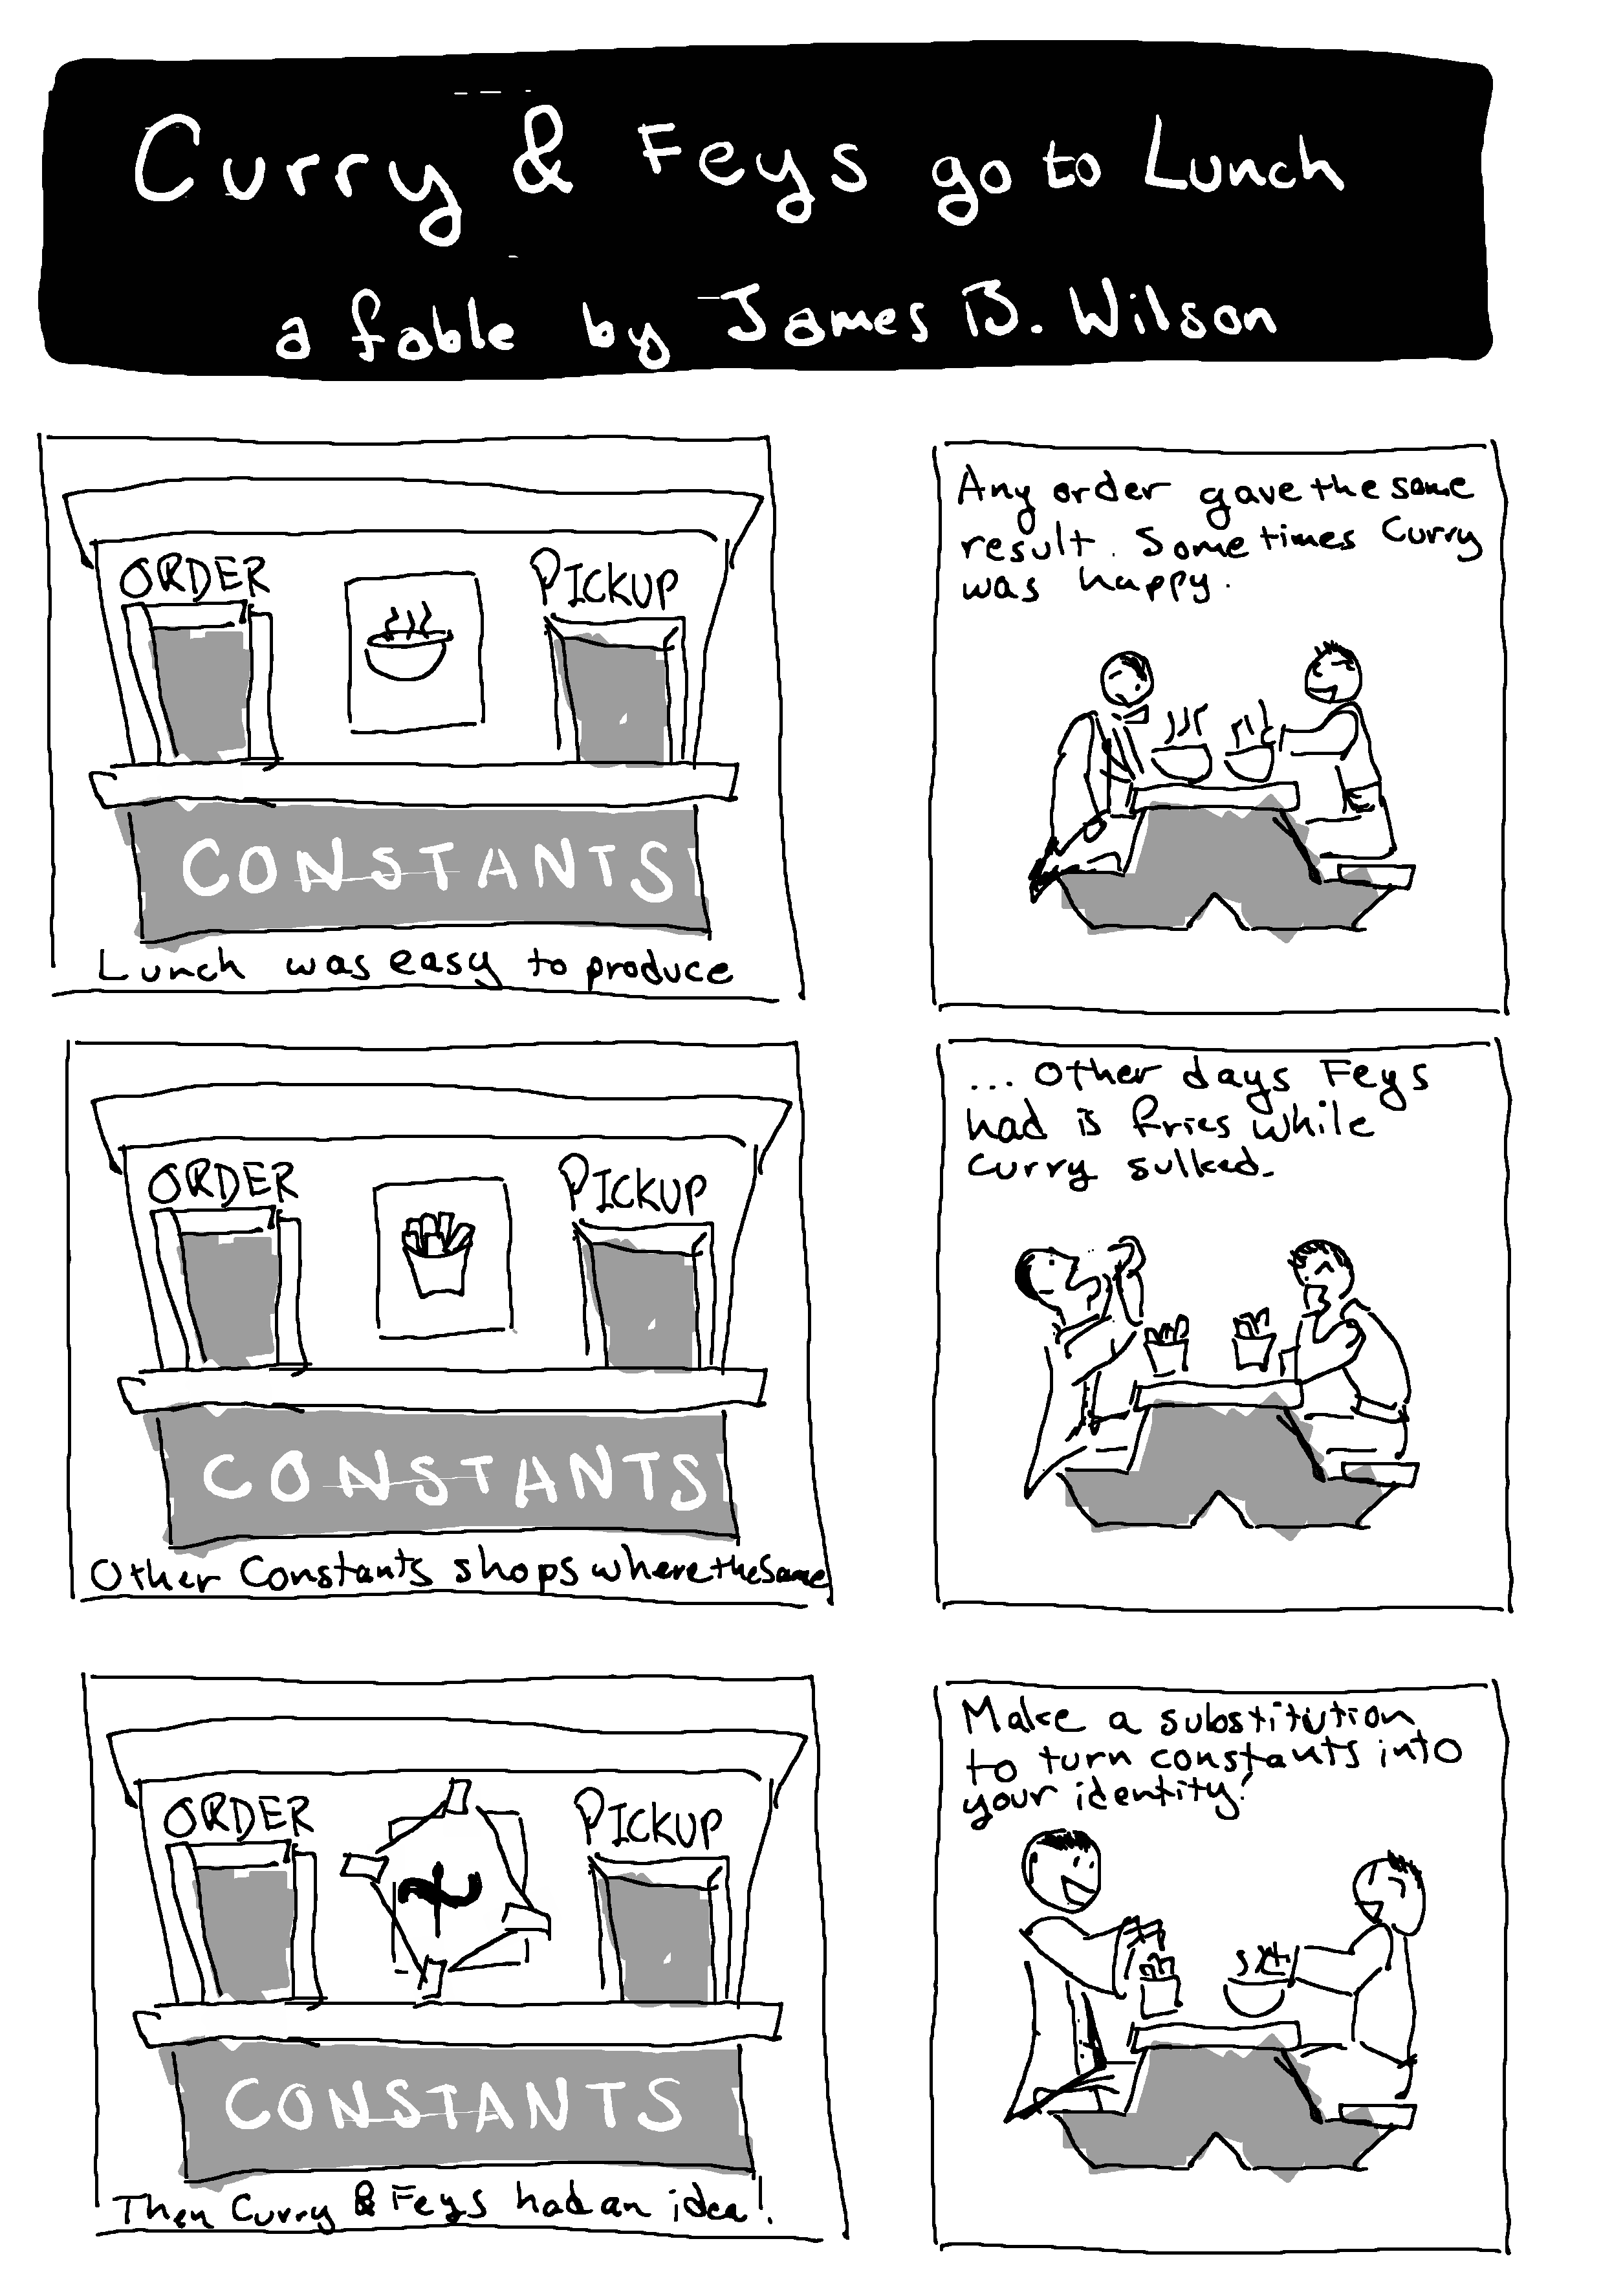 Curry & Feys go to Lunch
a fable by James B. Wilson
ORDER
PICKUP
CONSTANTS
Lunch was easy to produce
Any order gave the same
result. Sometimes Curry
was happy.
ORDER
PICKUP
CONSTANTS
Other Constants shops where the same
... Other days Feys
had is fries while
Curry sulked.
ORDER
PICKUP
CONSTANTS
Then Curry & Feys had an idea!
Make a substitution
to turn constants into
your identity!